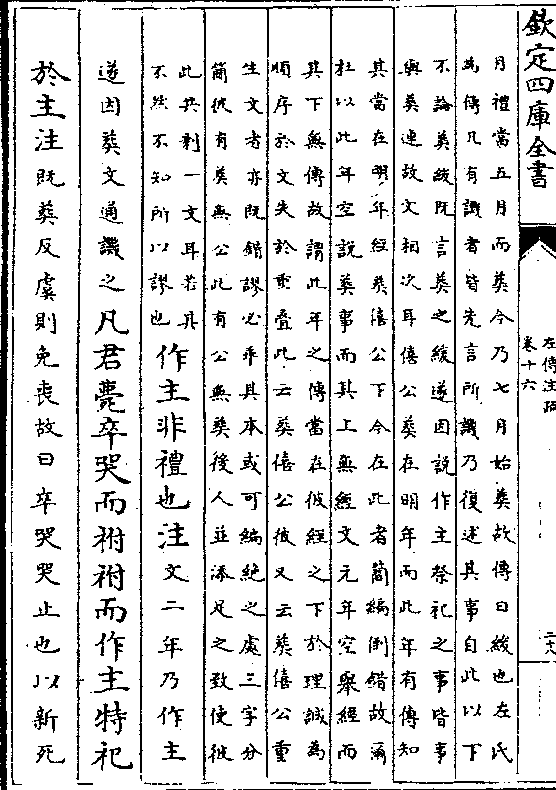 欽定四庫全書
左傳注疏
卷十六
月禮當五月而葬今乃七月始葬故傳曰緩也左氏
為傳凡有譏者皆先言所譏乃復述其事自此以下
不論葬緩既言葬之緩遂因説作主祭祀之事皆事
與葬連故文相次耳僖公葬在明年而此年有傳知
其當在明年經葬僖公下今在此者簡編倒錯故爾
杜以此年空説葬事而其上無經文元年空舉經而
其下無傳故謂此年之傳當在彼經之下於理誠為
順序於文失於重疊此云葬僖公彼又云葬僖公重
生文者亦既錯謬必乖其本或可編絶之處三字分
簡彼有葬無公此有公無葬後人並添足之致使彼
此共剩一文耳若其
不然不知所以謬也
作主非禮也注文二年乃作主
遂因葬文通譏之凡君薨卒哭而祔祔而作主特祀
於主注既葬反虞則免喪故曰卒哭哭止也以新死